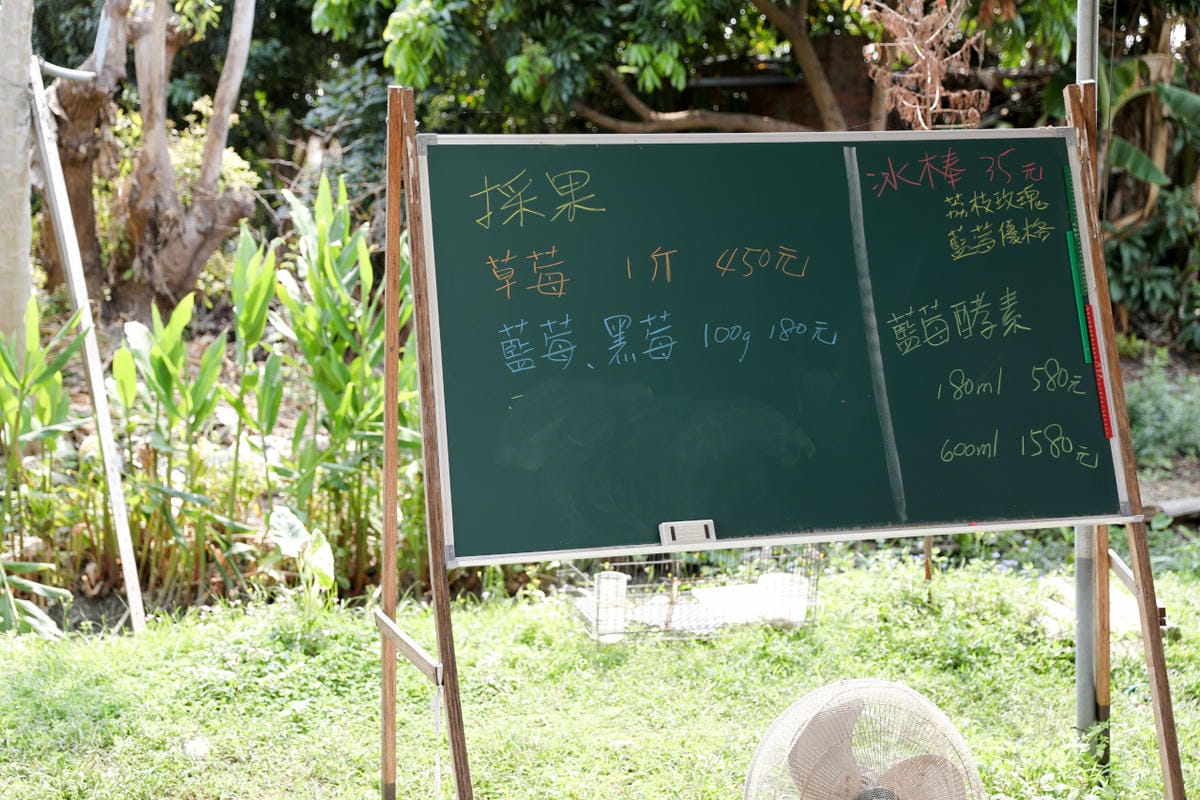 採果
草莓 1斤 450元
藍莓、黑莓 100g 180元
冰棒 35元
荔枝玫瑰
藍莓優格
藍莓酵素
180ml 580元
600ml 1580元